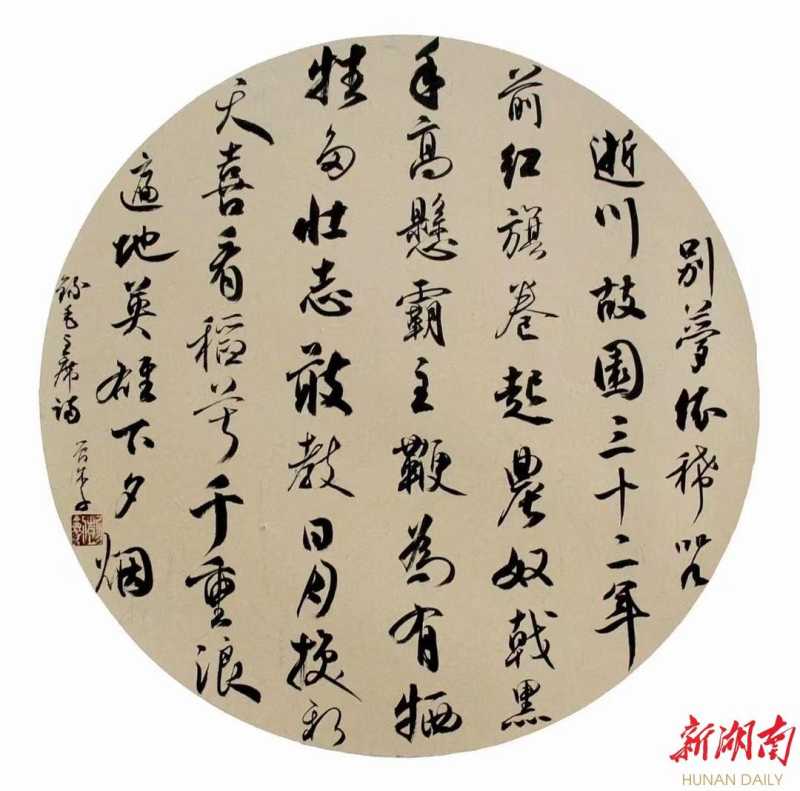 别夢依稀咒
逝川故園三十二年
前红旗卷起農奴戟黑
手高懸霸主鞭為有牺
牲多壮志敢教日月换新
天喜看稻菽千重浪
遍地英雄下夕烟
錄毛主席詩
新湖南
HUNAN DAILY